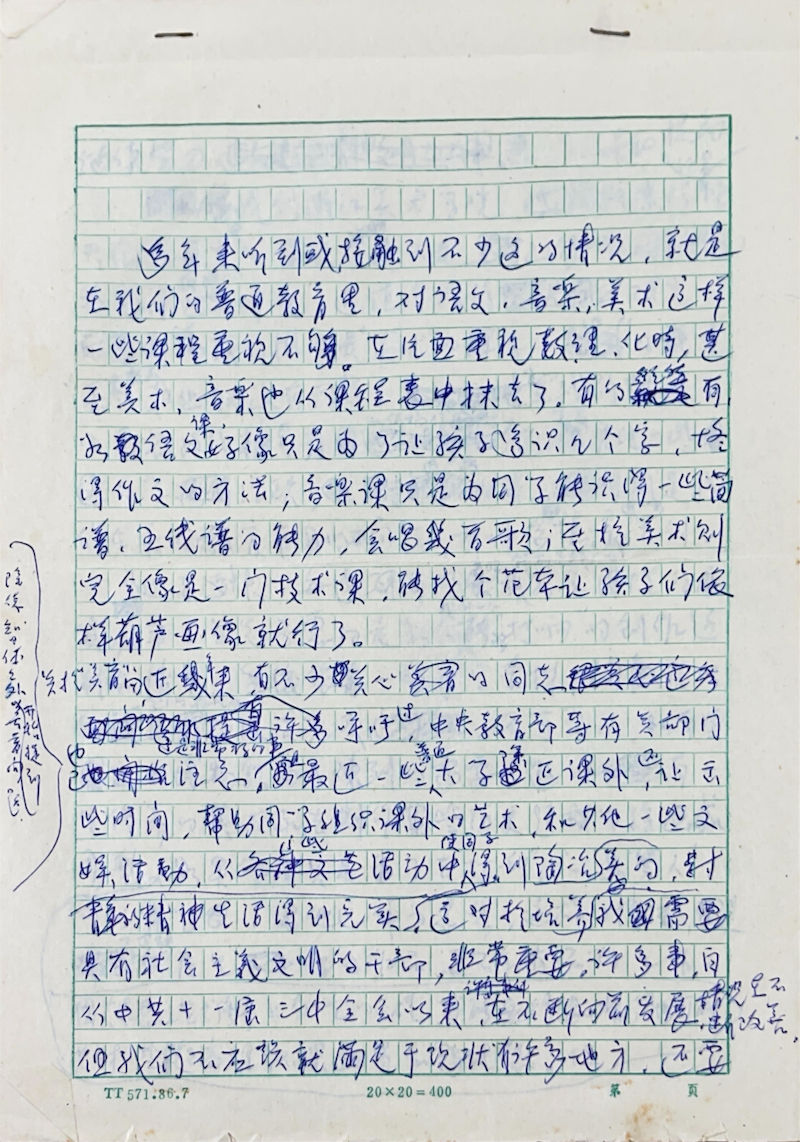 多年来听到或接触到不少这的情况，就是
在我们的普通教育里，对语文、音乐、美术这样
一些课程重视不够。在片面重视数理、化时，甚
至美术、音乐也从课程表中抹去了。有的 有，
语文课好像只是为了让孩子多识几个字，懂
得作文的方法；音乐课只是为同学能识得一些简
谱、五线谱的能力，会唱几首歌；至于美术则
完全像是一门技术课，能找个范本让孩子们依
样葫芦画像就行了。
近几年来，有不少关心美育的同志
许多呼吁过，中央教育部等有关部门
也已 注意，最近一些大学 正课外，让出
些时间，帮助同学组织课外的艺术，和其他一些文
娱活动，从这些活动中使同学得到陶冶美的，
精神生活得到充实，这对于培养我国需要
具有社会主义文明的干部，非常重要。许多事，自
从中共十一届三中全会以来，在不断向前发展，情况是不断改善，
但我们不应该就满足于现状有许多地方，还要
TT 571.86.7
20×20=400
第 页